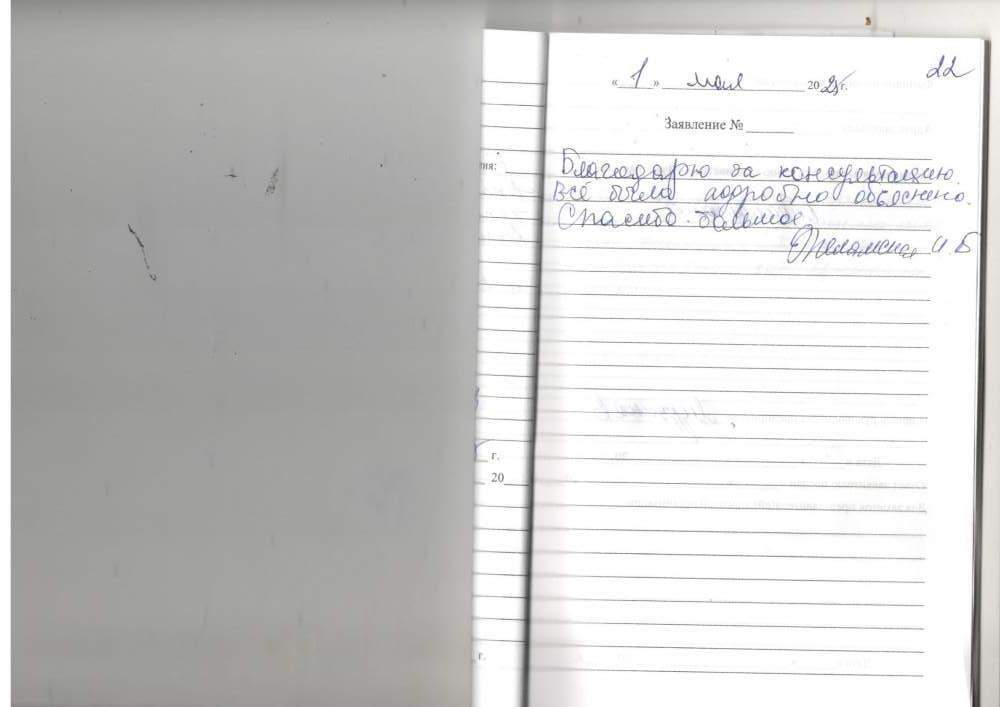 22
« 1 » мая 2025 г.
Заявление №
ия:
Благодарю за консультацию.
Всё было подробно объяснено.
Спасибо большое.
И.Б
г.
20
г.